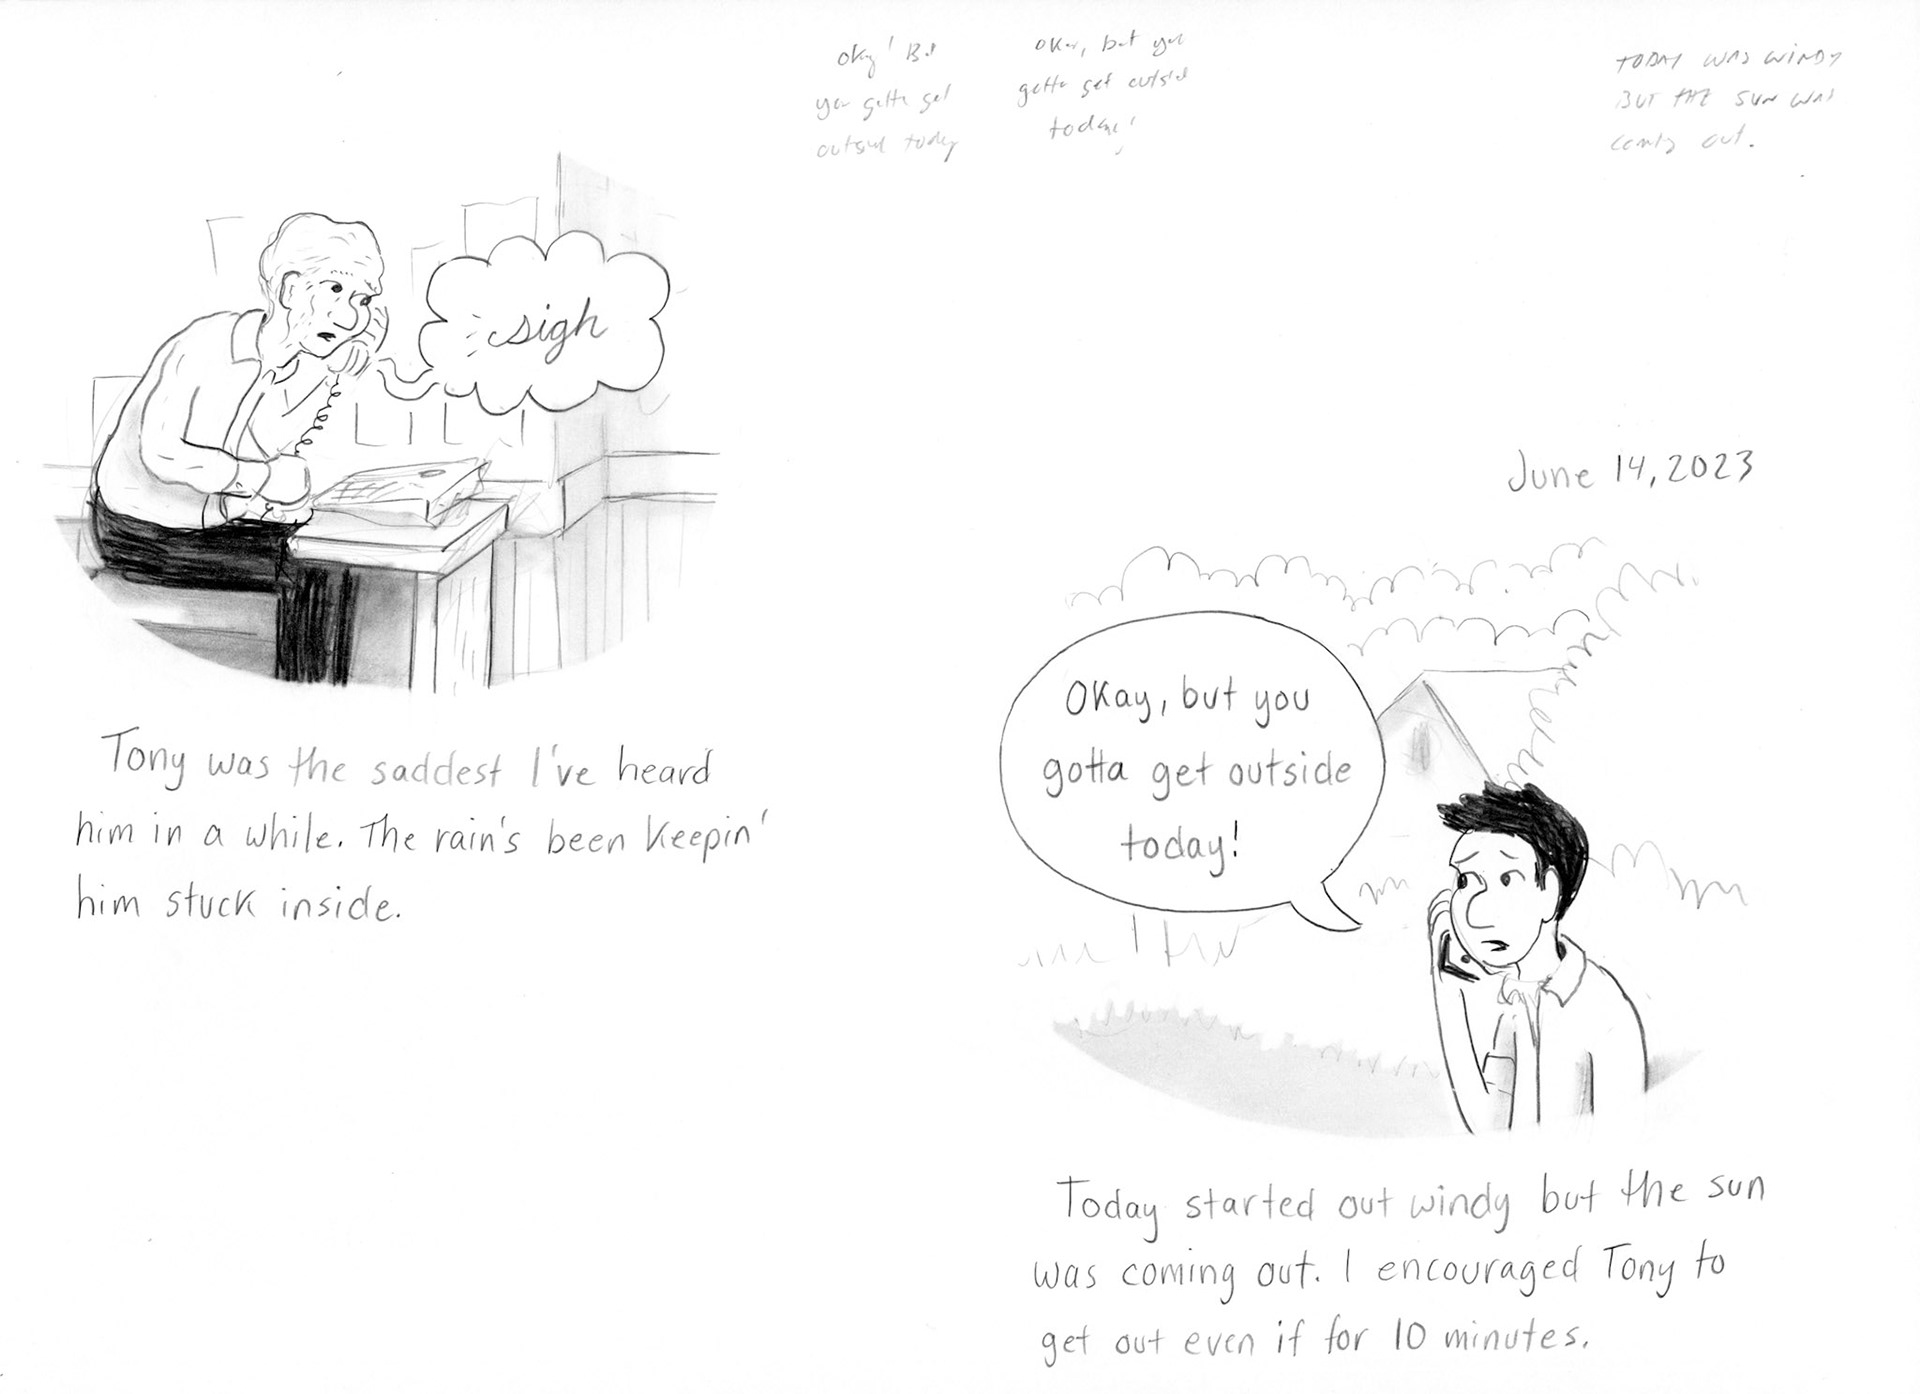 Okay! But
you gotta get
outside today
Okay, but you
gotta get outside
today!
TODAY WAS WINDY
BUT THE SUN WAS
coming out.
sigh
Tony was the saddest I've heard
him in a while. The rain's been keepin'
him stuck inside.
June 14, 2023
Okay, but you
gotta get outside
today!
Today started out windy but the sun
was coming out. I encouraged Tony to
get out even if for 10 minutes.